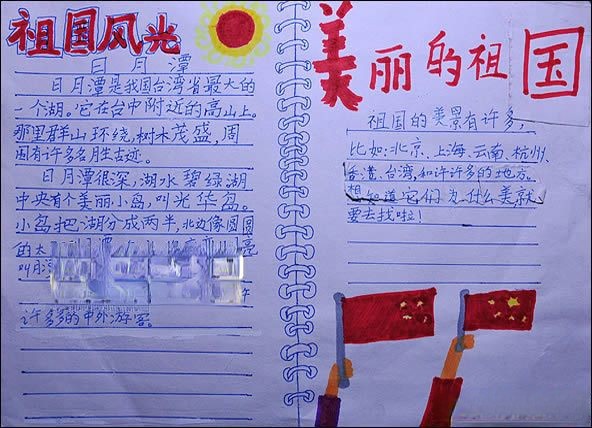 祖国风光
日月潭
日月潭是我国台湾省最大的
一个湖。它在台中附近的高山上。
那里群山环绕，树木茂盛，周
围有许多名胜古迹。
日月潭很深，湖水碧绿湖
中央有个美丽小岛，叫光华岛。
小岛把湖分成两半，北边像圆圆
的太
亮
叫月潭
许多的中外游客。
美丽的祖国
祖国的美景有许多，
比如：北京、上海、云南、杭州、
香港、台湾，和许许多的地方。
想知道它们为什么美就
要去找啦！